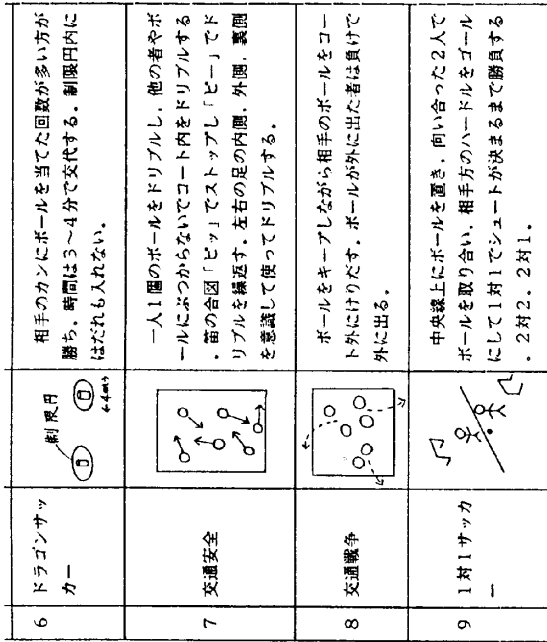 6
ドラゴンサッ
カー
制限円
←4m→
相手のカンにボールを当てた回数が多い方が
勝ち。時間は3〜4分で交代する。制限円内に
はだれも入れない。
7
交通安全
一人1個のボールをドリブルし、他の者やボ
ールにぶつからないでコート内をドリブルする
。笛の合図「ピッ」でストップし「ピー」でド
リブルを繰返す。左右の足の内側、外側、裏側
を意識して使ってドリブルする。
8
交通戦争
ボールをキープしながら相手のボールをコー
ト外にけりだす。ボールが外に出た者は負けで
外に出る。
9
1対1サッカ
ー
中央線上にボールを置き、向い合った2人で
ボールを取り合い、相手方のハードルをゴール
にして1対1でシュートが決まるまで勝負する
。2対2、2対1。